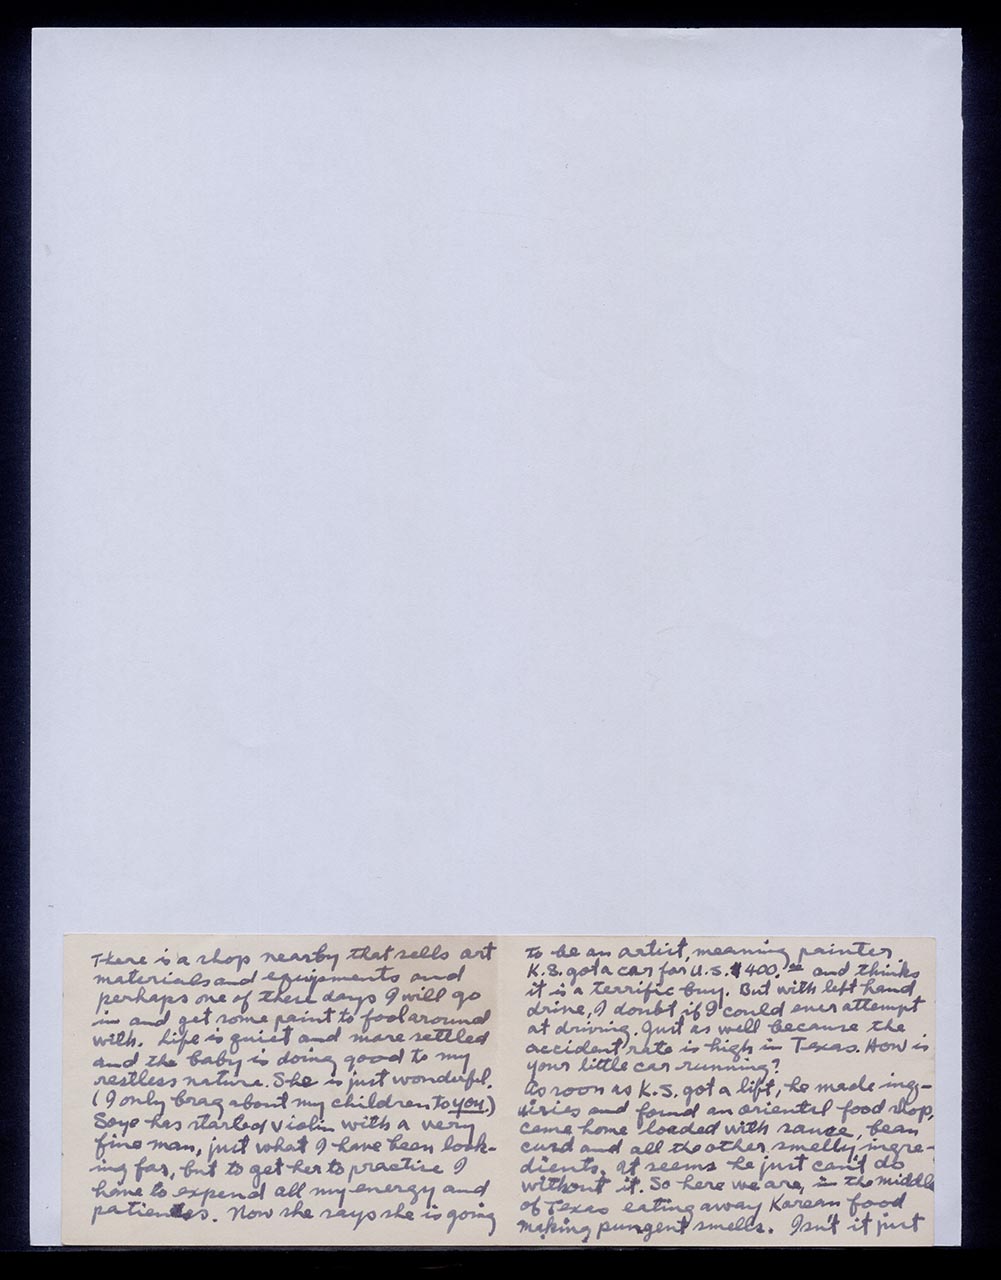 There is a shop nearby that sells art
materials and equipments and
perhaps one of these days I will go
in and get some paint to fool around
with. Life is quiet and more settled
and the baby is doing good to my
restless nature. She is just wonderful.
(I only brag about my children to you.)
Saya has started violin with a very
fine man, just what I have been look-
ing for, but to get her to practice I
have to expend all my energy and
patiences. Now she says she is going
to be an artist, meaning painter
K.S. got a car for U.S. $400.00 and thinks
it is a terrific buy. But with left hand
drive, I doubt if I could ever attempt
at driving. Just as well because the
accident rate is high in Texas. How is
your little car running?
As soon as K.S. got a lift, he made inq-
uiries and found an oriental food shop,
came home loaded with sauce, bean
curd and all the other smelly ingre-
dients. It seems he just can't do
without it. So here we are, in the middle
of Texas eating away Korean food
making pungent smells. Isn't it just